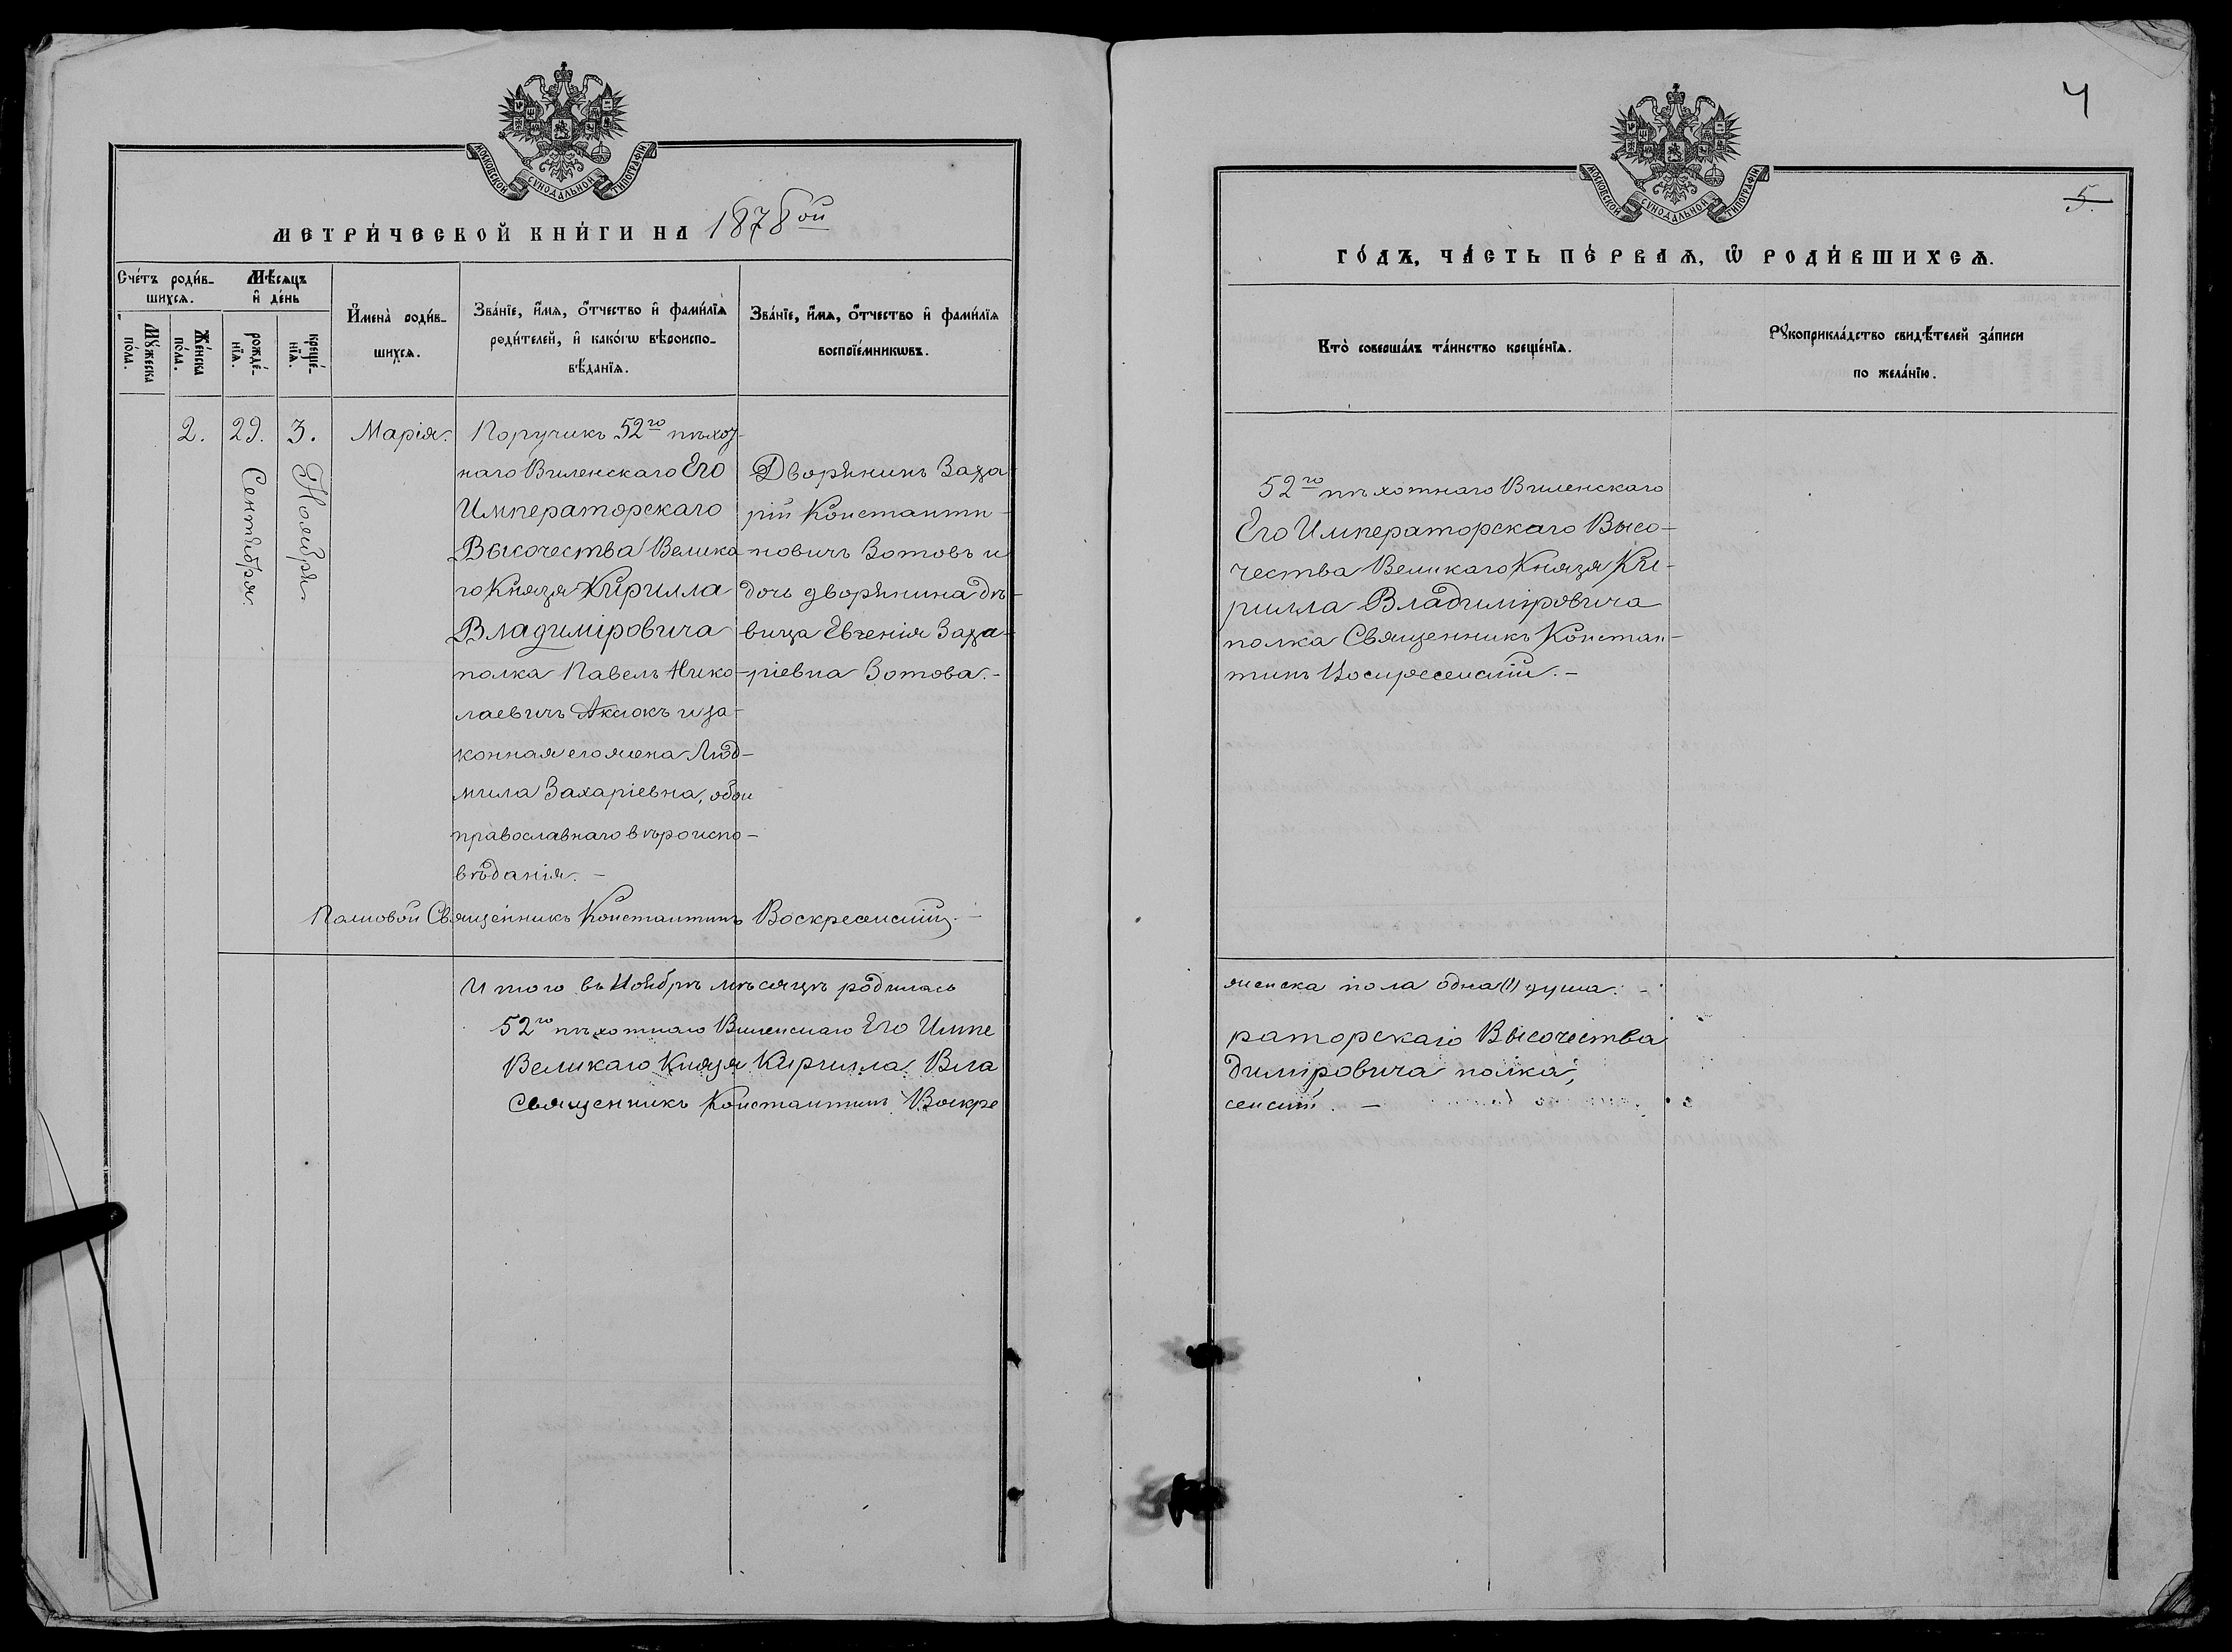 МОСКОВСКОЙ СѴНОДАЛЬНОЙ ТИПОГРАФІИ
МЕТРИ́ЧЕСКОЙ КНИ́ГИ НА 1878ой
Сче́тъ роди́в-
шихсѧ.
Мѣ́сѧцъ
и҆ де́нь
Мꙋ́жеска
по́ла.
Же́нска
по́ла.
рожде́-
нїѧ.
креще́-
нїѧ.
И҆мена̀ роди́в-
шихсѧ.
Зва́нїе, и҆́мѧ, ѻ҆́тчество и҆ фами́лїѧ
роди́телей, и҆ како́гѡ вѣроиспо-
вѣ́данїѧ.
Зва́нїе, и҆́мѧ, ѻ҆́тчество и҆ фами́лїѧ
воспрїе́мникѡвъ.
2.
29.
Сентября.
3.
Ноября
Марія.
Поручикъ 52го пѣхот-
наго Виленскаго Его
Императорскаго
Высочества Велика
го Князя Кирилла
Владиміровича
полка Павелъ Нико-
лаевичъ Акслокъ и за-
конная его жена Люд-
мила Захаріевна, обои
православнаго вѣроиспо-
вѣданія. -
Дворянинъ Заха
рій Константи-
новичъ Зотовъ и
дочь дворянина дѣ-
вица Евгенія Заха-
ріевна Зотова. -
Полковой Священникъ Константинъ Воскресенскій. -
Итого въ Ноябрѣ мѣсяцѣ родилась
52го пѣхотнаго Виленскаго Его Импе
Великаго Князя Кирилла Вла
Священникъ Константинъ Воскре
4
5.
МОСКОВСКОЙ СѴНОДАЛЬНОЙ ТИПОГРАФІИ
ГО́ДЪ, ЧА́СТЬ ПЕ́РВАѦ, Ѡ҆ РОДИ́ВШИХСѦ.
Кто̀ соверша́лъ та́инство креще́нїѧ.
Рꙋкоприкла́дство свидѣ́телей за́писи
по жела́нїю.
52го пѣхотнаго Виленскаго
Его Императорскаго Высо-
чества Великаго Князя Ки-
рилла Владиміровича
полка Священникъ Констан-
тинъ Воскресенскій. -
женска пола одна (1) душа. -
раторскаго Высочества
диміровича полка,
сенскій. -